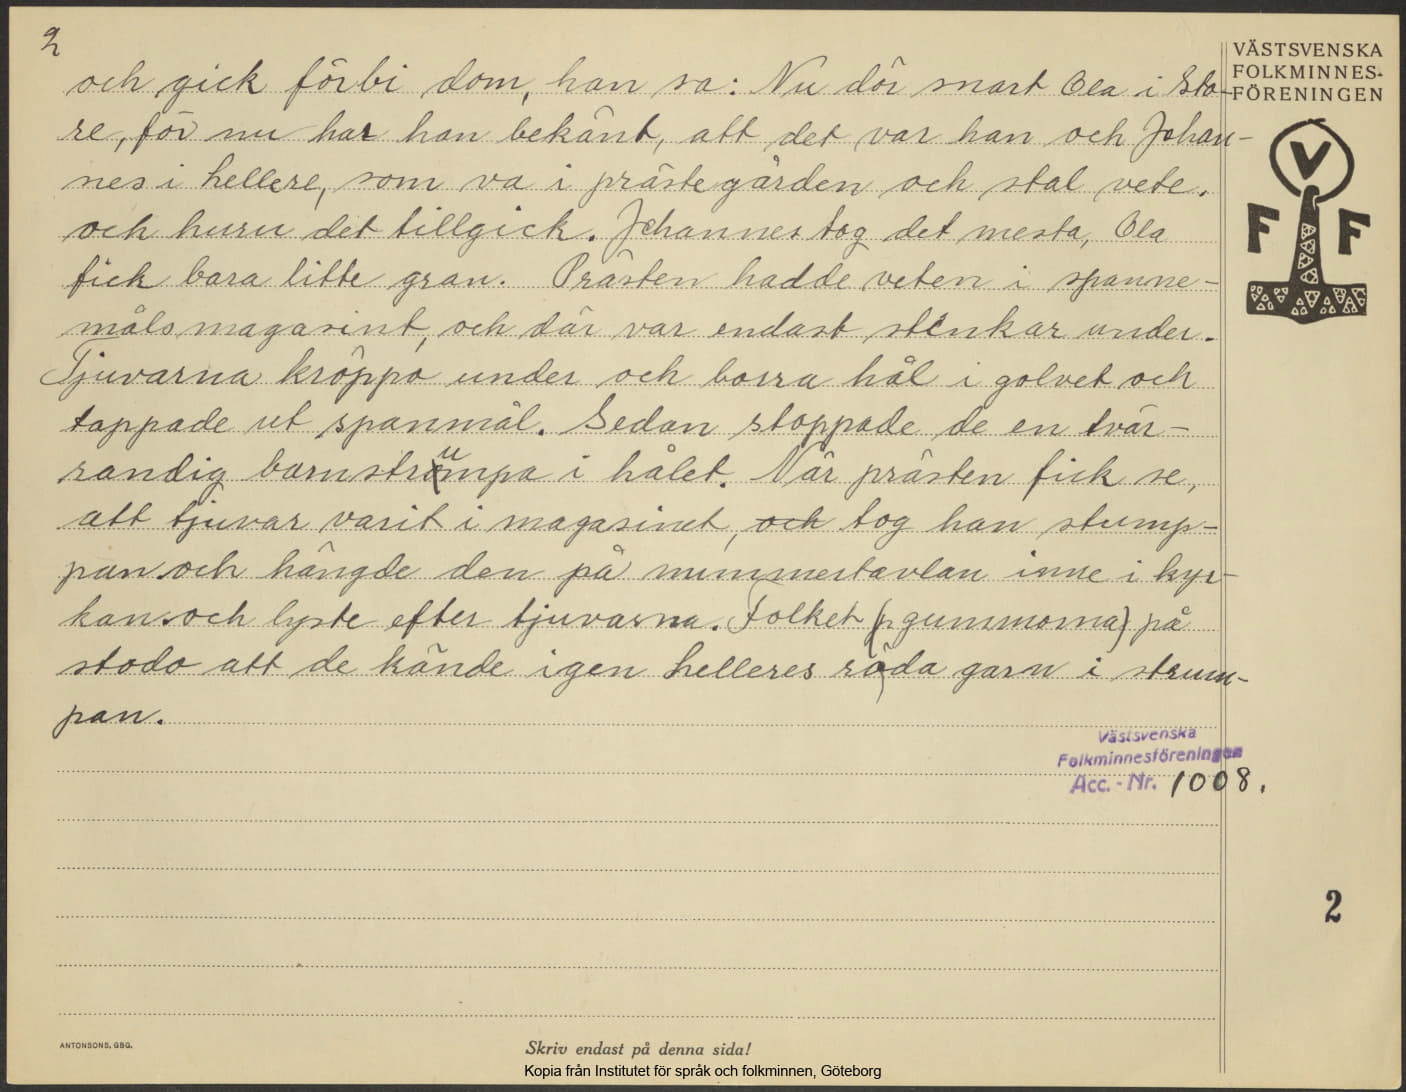 2
VÄSTSVENSKA
FOLKMINNES-
FÖRENINGEN
V
F F
och gick förbi dom, han sa: Nu dör snart Ola i Sto-
re, för nu har han bekänt, att det var han och Johan-
nes i hellere, som va i prästegården och stal vete.
och huru det tillgick. Johannes tog det mesta, Ola
fick bara litte gran. Prästen hadde veten i spanne-
måls magasint, och där var endast stenkar under.
Tjuvarna kröppo under och borra hål i golvet och
tappade ut spanmål. Sedan stoppade de en tvär-
randig barnstrumpa i hålet. När prästen fick se,
att tjuvar varit i magasinet, och tog han stump-
pan och hängde den på nummertavlan inne i kyr-
kan och lyste efter tjuvarna. Folket (gummorna) på
stodo att de kände igen helleres röda garn i strum-
pan.
Västsvenska
Folkminnesföreningen
Acc. - Nr. 1008.
2
ANTONSONS, GBG.
Skriv endast på denna sida!
Kopia från Institutet för språk och folkminnen, Göteborg